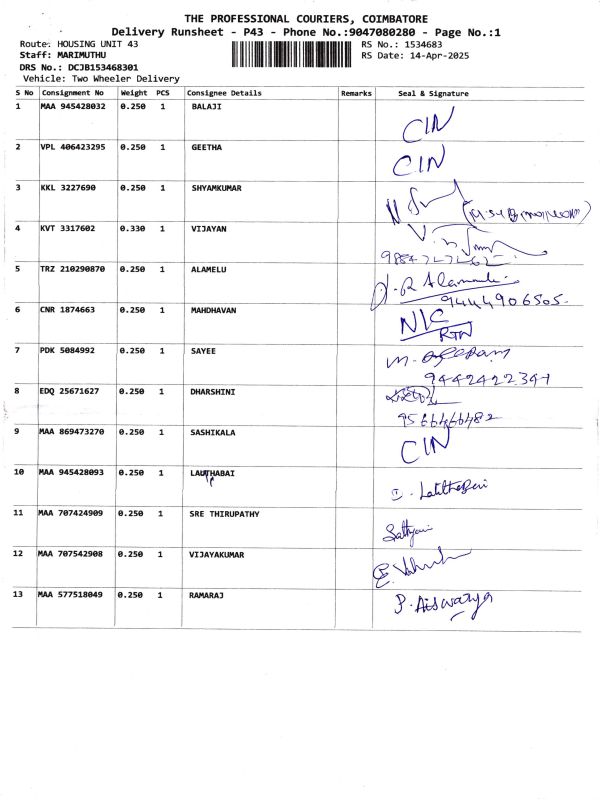 THE PROFESSIONAL COURIERS, COIMBATORE
Delivery Runsheet - P43 - Phone No.:9047080280 - Page No.:1
Route: HOUSING UNIT 43 RS No.: 1534683
Staff: MARIMUTHU RS Date: 14-Apr-2025
DRS No.: DCJB153468301
Vehicle: Two Wheeler Delivery
S No Consignment No Weight PCS Consignee Details Remarks Seal & Signature
1 MAA 945428032 0.250 1 BALAJI CIN
2 VPL 406423295 0.250 1 GEETHA CIN
3 KKL 3227690 0.250 1 SHYAMKUMAR
4 KVT 3317602 0.330 1 VIJAYAN
5 TRZ 210290870 0.250 1 ALAMELU
9444906505.
6 CNR 1874663 0.250 1 MAHDHAVAN N/C
RTN
7 PDK 5084992 0.250 1 SAYEE
9442422341
8 EDQ 25671627 0.250 1 DHARSHINI
9566466482
9 MAA 869473270 0.250 1 SASHIKALA CIN
10 MAA 945428093 0.250 1 LAUTHABAI
11 MAA 707424909 0.250 1 SRE THIRUPATHY
12 MAA 707542908 0.250 1 VIJAYAKUMAR
13 MAA 577518049 0.250 1 RAMARAJ P. Aiswarya